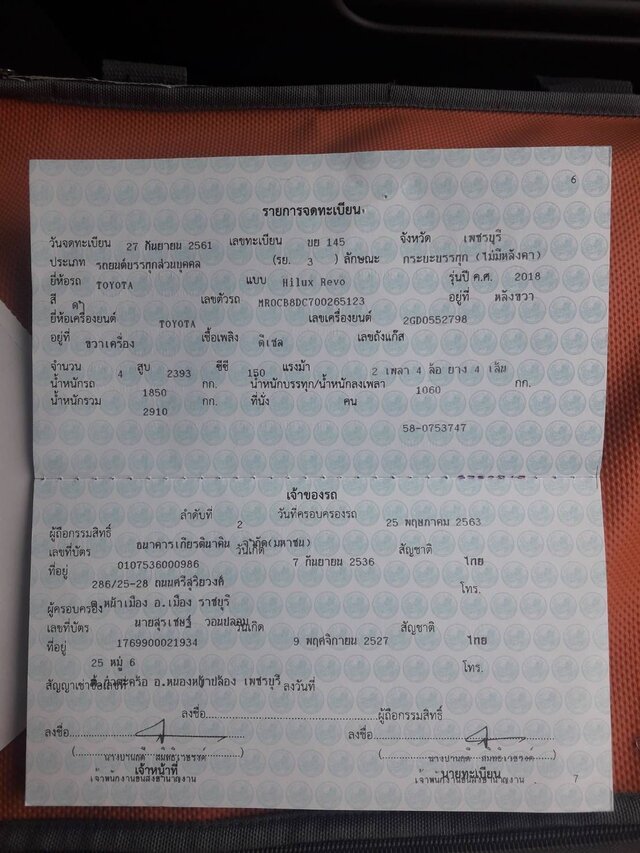 6
รายการจดทะเบียน
วันจดทะเบียน 27 กันยายน 2561 เลขทะเบียน บย 145 จังหวัด เพชรบุรี
ประเภท รถยนต์บรรทุกส่วนบุคคล (รย. 3 ) ลักษณะ กระบะบรรทุก (ไม่มีหลังคา)
ยี่ห้อรถ TOYOTA แบบ Hilux Revo รุ่นปี ค.ศ. 2018
สี ดำ เลขตัวรถ MR0CB8DC700265123 อยู่ที่ หลังขวา
ยี่ห้อเครื่องยนต์ TOYOTA เลขเครื่องยนต์ 2GD0552798
อยู่ที่ ขวาเครื่อง เชื้อเพลิง ดีเซล เลขถังแก๊ส
จำนวน 4 สูบ 2393 ซีซี 150 แรงม้า 2 เพลา 4 ล้อ ยาง 4 เส้น
น้ำหนักรถ 1850 กก. น้ำหนักบรรทุก/น้ำหนักลงเพลา 1060 กก.
น้ำหนักรวม 2910 กก. ที่นั่ง คน
58-0753747
เจ้าของรถ
ลำดับที่ 2 วันที่ครอบครองรถ 25 พฤษภาคม 2563
ผู้ถือกรรมสิทธิ์ ธนาคารเกียรตินาคิน จำกัด(มหาชน)
เลขที่บัตร 0107536000986 วันเกิด 7 กันยายน 2536 สัญชาติ ไทย
ที่อยู่ 286/25-28 ถนนศรีสุริยวงศ์ โทร.
ต.หน้าเมือง อ.เมือง ราชบุรี
ผู้ครอบครอง นายสุรเชษฐ์ วอนปลอม
เลขที่บัตร 1769900021934 วันเกิด 9 พฤศจิกายน 2527 สัญชาติ ไทย
ที่อยู่ 25 หมู่ 6 โทร.
อ.หนองหญ้าปล้อง เพชรบุรี
สัญญาเช่าซื้อเลขที่ ลงวันที่
ลงชื่อ ผู้ถือกรรมสิทธิ์
ลงชื่อ ลงชื่อ
เจ้าหน้าที่ นายทะเบียน
เจ้าพนักงานขนส่งชำนาญงาน เจ้าพนักงานขนส่งชำนาญงาน
7